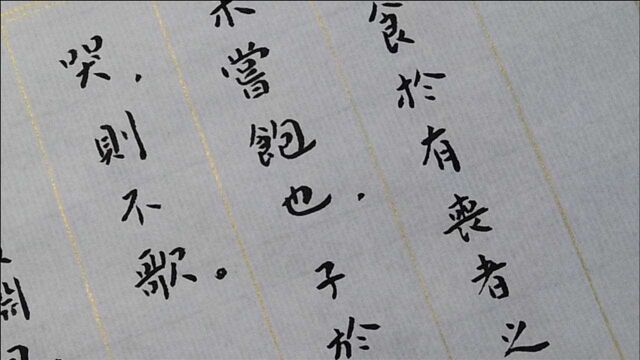 食於有喪者之
未嘗飽也，子於
哭，則不歌。